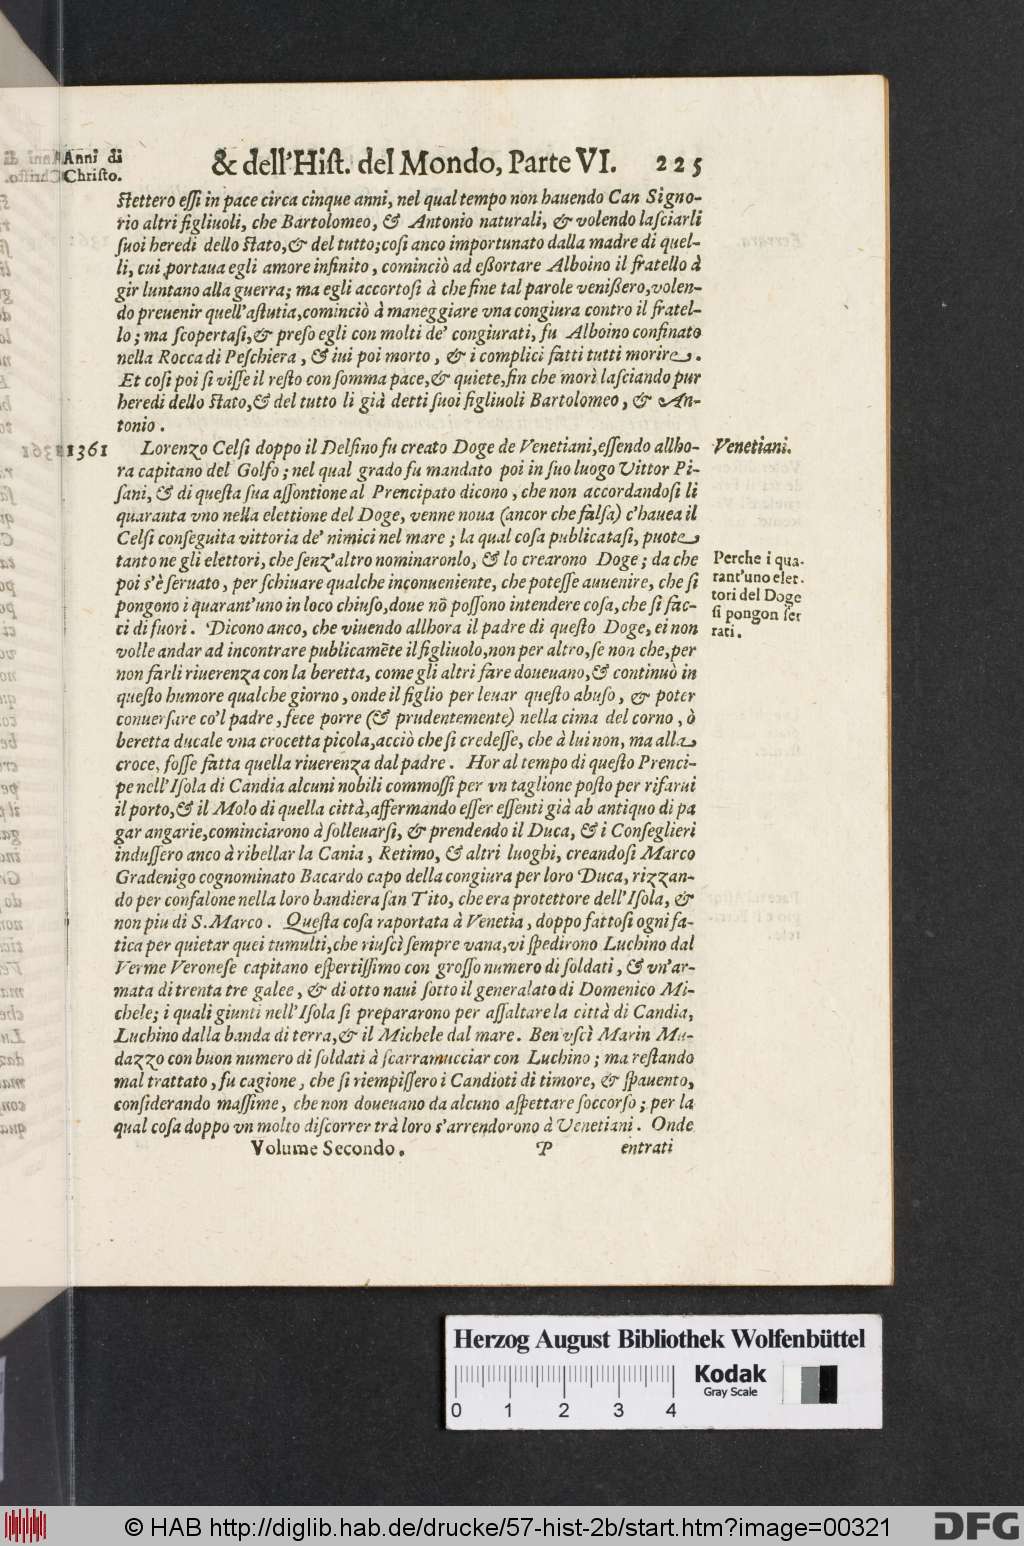 Anni di
Christo.
& dell'Hiſt. del Mondo, Parte VI. 225
ſtettero eſſi in pace circa cinque anni, nel qual tempo non hauendo Can Signo-
rio altri figliuoli, che Bartolomeo, & Antonio naturali, & volendo laſciarli
ſuoi heredi dello ſtato, & del tutto; coſi anco importunato dalla madre di quel-
li, cui portaua egli amore infinito, cominciò ad eßortare Alboino il fratello à
gir luntano alla guerra; ma egli accortoſi à che fine tal parole venißero, volen-
do preuenir quell'aſtutia, cominciò à maneggiare vna congiura contro il fratel-
lo; ma ſcopertaſi, & preſo egli con molti de' congiurati, fu Alboino confinato
nella Rocca di Peſchiera, & iui poi morto, & i complici fatti tutti morire.
Et coſi poi ſi viſſe il reſto con ſomma pace, & quiete, fin che morì laſciando pur
heredi dello ſtato, & del tutto li già detti ſuoi figliuoli Bartolomeo, & An-
tonio.
1361 Lorenzo Celſi doppo il Delfino fu creato Doge de Venetiani, eſſendo allho- Venetiani.
ra capitano del Golfo; nel qual grado fu mandato poi in ſuo luogo Vittor Pi-
ſani, & di queſta ſua aſſontione al Prencipato dicono, che non accordandoſi li
quaranta vno nella elettione del Doge, venne noua (ancor che falſa) c'hauea il
Celſi conſeguita vittoria de' nimici nel mare; la qual coſa publicataſi, puote
tanto ne gli elettori, che ſenz'altro nominaronlo, & lo crearono Doge; da che
poi s'è ſeruato, per ſchiuare qualche inconueniente, che poteſſe auuenire, che ſi
pongono i quarant'uno in loco chiuſo, doue nõ poſſono intendere coſa, che ſi fac-
ci di fuori. Dicono anco, che viuendo allhora il padre di queſto Doge, ei non
Perche i qua-
rant'uno elet-
tori del Doge
ſi pongon ſer
rati.
volle andar ad incontrare publicamẽte il figliuolo, non per altro, ſe non che, per
non farli riuerenza con la beretta, come gli altri fare doueuano, & continuò in
queſto humore qualche giorno, onde il figlio per leuar queſto abuſo, & poter
conuerſare co'l padre, fece porre (& prudentemente) nella cima del corno, ò
beretta ducale vna crocetta picola, acciò che ſi credeſſe, che à lui non, ma alla
croce, foſſe fatta quella riuerenza dal padre. Hor al tempo di queſto Prenci-
pe nell'Iſola di Candia alcuni nobili commoſſi per vn taglione poſto per rifarui
il porto, & il Molo di quella città, affermando eſſer eſſenti già ab antiquo di pa
gar angarie, cominciarono à ſolleuarſi, & prendendo il Duca, & i Conſeglieri
induſſero anco à ribellar la Cania, Retimo, & altri luoghi, creandoſi Marco
Gradenigo cognominato Bacardo capo della congiura per loro Duca, rizzan-
do per confalone nella loro bandiera ſan Tito, che era protettore dell'Iſola, &
non piu di S. Marco. Queſta coſa raportata à Venetia, doppo fattoſi ogni fa-
tica per quietar quei tumulti, che riuſcì ſempre vana, vi ſpedirono Luchino dal
Verme Veroneſe capitano eſpertiſſimo con groſſo numero di ſoldati, & vn'ar-
mata di trenta tre galee, & di otto naui ſotto il generalato di Domenico Mi-
chele; i quali giunti nell'Iſola ſi prepararono per aſſaltare la città di Candia,
Luchino dalla banda di terra, & il Michele dal mare. Ben vſcì Marin Mu-
dazzo con buon numero di ſoldati à ſcarramucciar con Luchino; ma reſtando
mal trattato, fu cagione, che ſi riempiſſero i Candioti di timore, & ſpauento,
conſiderando maſſime, che non doueuano da alcuno aſpettare ſoccorſo; per la
qual coſa doppo vn molto diſcorrer trà loro s'arrendorono à Venetiani. Onde
Volume Secondo. P entrati
Herzog August Bibliothek Wolfenbüttel
Kodak
Gray Scale
0 1 2 3 4
© HAB http://diglib.hab.de/drucke/57-hist-2b/start.htm?image=00321
DFG